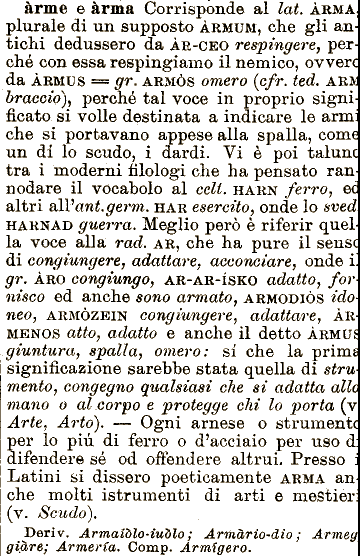 àrme e àrma Corrisponde al lat. ÀRMA
plurale di un supposto ÀRMUM, che gli an-
tichi dedussero da ÀR-CEO respingere, per-
ché con essa respingiamo il nemico, ovvero
da ÀRMUS = gr. ARMÒS omero (cfr. ted. ARM
braccio), perché tal voce in proprio signi-
ficato si volle destinata a indicare le armi
che si portavano appese alla spalla, come
un dí lo scudo, i dardi. Vi è poi taluno
tra i moderni filologi che ha pensato ran-
nodare il vocabolo al celt. HARN ferro, ed
altri all'ant.germ. HAR esercito, onde lo sved.
HARNAD guerra. Meglio però è riferir quel-
la voce alla rad. AR, che ha pure il senso
di congiungere, adattare, acconciare, onde il
gr. ÀRO congiungo, AR-AR-ÍSKO adatto, for-
nisco ed anche sono armato, ARMODIÒS ido-
neo, ARMÒZEIN congiungere, adattare, ÀR-
MENOS atto, adatto e anche il detto ÀRMUS
giuntura, spalla, omero: sí che la prima
significazione sarebbe stata quella di stru-
mento, congegno qualsiasi che si adatta alla
mano o al corpo e protegge chi lo porta (v.
Arte, Arto). — Ogni arnese o strumento
per lo piú di ferro o d'acciaio per uso di
difendere sé od offendere altrui. Presso i
Latini si dissero poeticamente ARMA an-
che molti istrumenti di arti e mestieri
(v. Scudo).
Deriv. Armaiòlo-iuòlo; Armàrio-dio; Armeg-
giàre; Armería. Comp. Armígero.